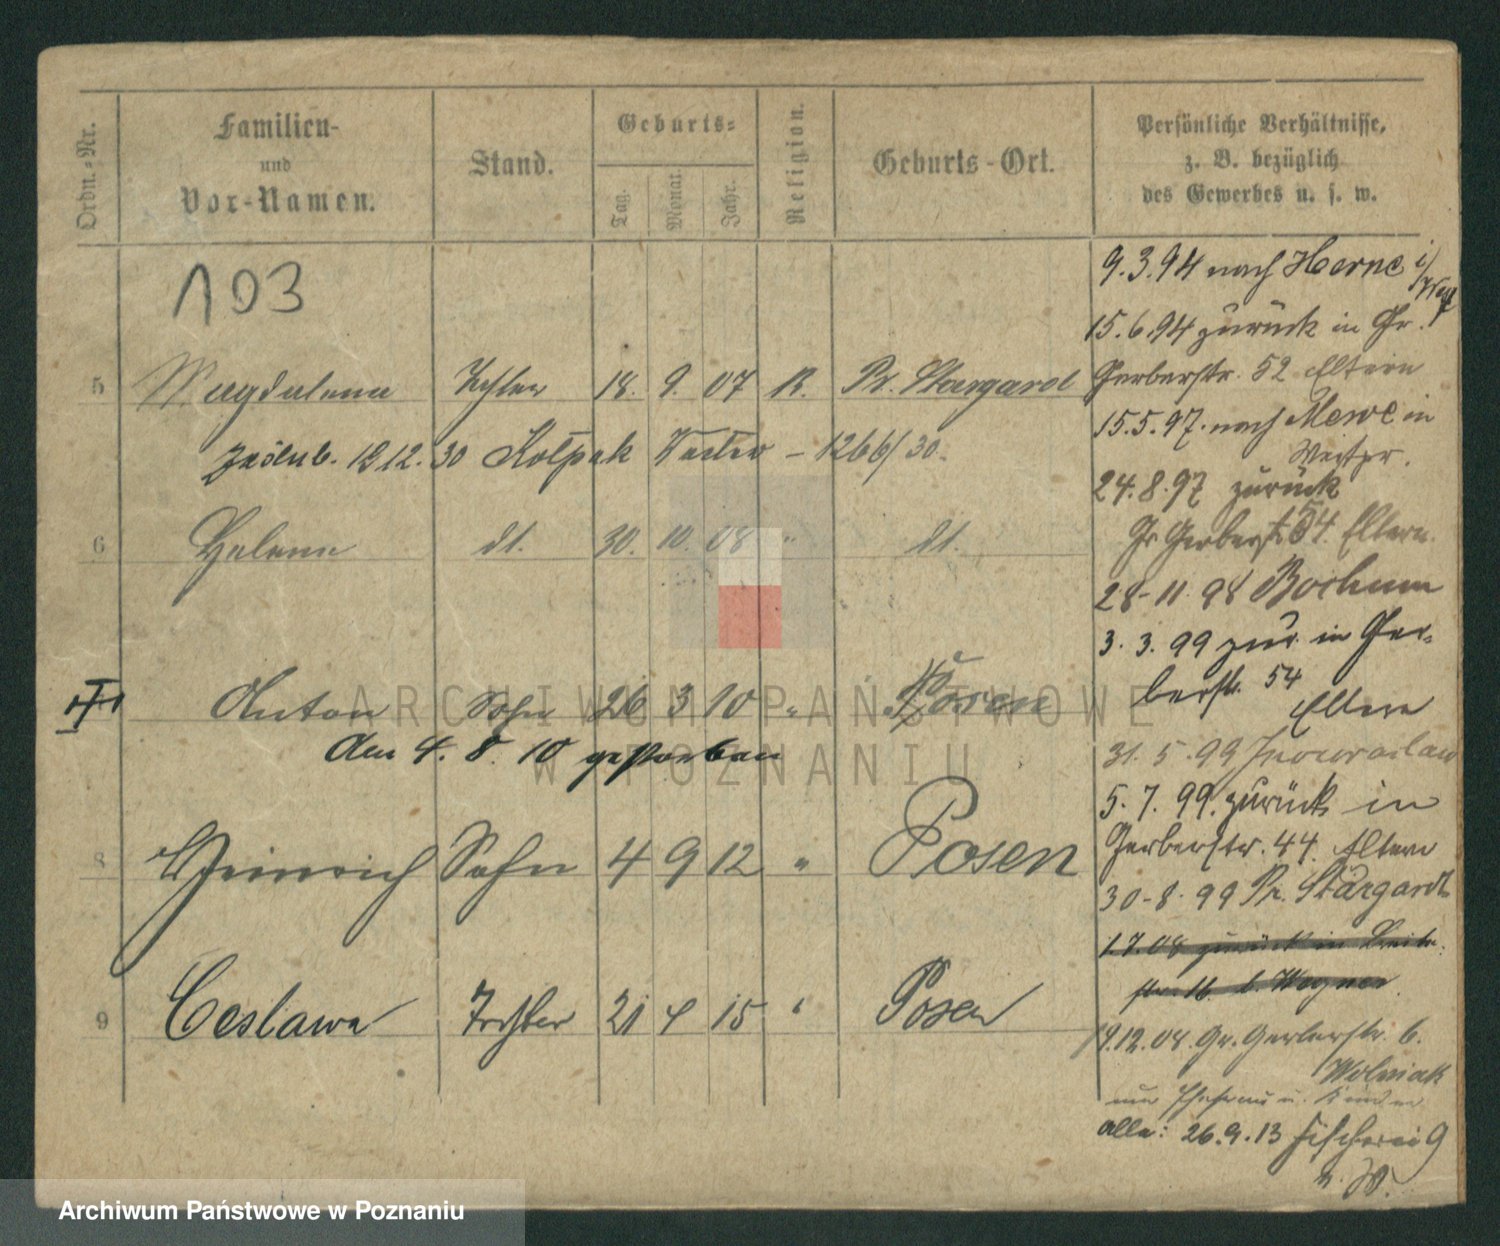 Ordn.-Nr.
Familien-
und
Vor-Namen.
Stand.
Geburts-
Tag.
Monat.
Jahr.
Religion.
Geburts-Ort.
Persönliche Verhältnisse,
z. B. bezüglich
des Gewerbes u. s. w.
103
5 Magdalena Tochter 18. 9. 07 R. Pr. Stargard
zaślub. 12.30 Kołpak – 1266/30.
6 Helena dt. 30. 10. 08 " dt.
Anton Sohn 26 3 10 " Posen
den 4. 8. 10 gestorben
8 Heinrich Sohn 4 9 12 " Posen
9 Ceslawa Tochter 21 4 15 " Posen
9.3.94 nach Herne i/
Westf
15.6.94 zurück in Gr.
Gerberstr. 52 Eltern
15.5.97. nach Mewe in
Westpr.
24.8.97 zurück
Gr Gerberst 54. Eltern.
28-11 98 Bochum
3. 3. 99 zur. in Ger-
berstr. 54
Eltern
31. 5. 99 Inowraclaw
5. 7. 99. zurück in
Gerberstr. 44. Eltern
30-8. 99 Pr. Stargardt
1.7.08 zurück in Breite-
str. 16 b. Wegner
19.12.08 Gr. Gerberstr. 6.
Wolniak
nur Ehefrau u. Kinder
alle: 26.9.13 Fischerei 9
ARCHIWUM PAŃSTWOWE
W POZNANIU
Archiwum Państwowe w Poznaniu